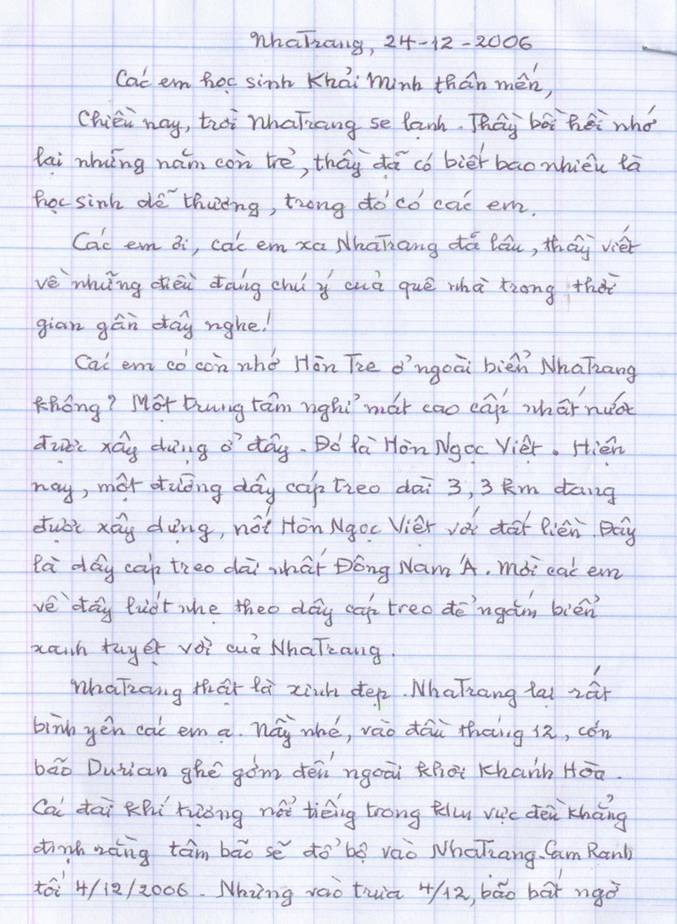 NhaTrang, 24-12-2006
Các em học sinh Khải Minh thân mến,
Chiều nay, trời NhaTrang se lạnh. Thầy bồi hồi nhớ
lại những năm còn trẻ, thầy đã có biết bao nhiêu là
học sinh dễ thương, trong đó có các em.
Các em ơi, các em xa NhaTrang đã lâu, thầy viết
về những điều đáng chú ý của quê nhà trong thời
gian gần đây nghe!
Các em có còn nhớ Hòn Tre ở ngoài biển NhaTrang
không? Một trung tâm nghỉ mát cao cấp nhất nước
được xây dựng ở đây. Đó là Hòn Ngọc Việt. Hiện
nay, một đường dây cáp treo dài 3,3 km đang
được xây dựng, nối Hòn Ngọc Việt với đất liền. Đây
là dây cáp treo dài nhất Đông Nam Á. Mời các em
về đây lướt nhẹ theo dây cáp treo để ngắm biển
xanh tuyệt vời của NhaTrang.
NhaTrang thật là xinh đẹp. NhaTrang lại rất
bình yên các em ạ. Nầy nhé, vào đầu tháng 12, cơn
bão Durian ghê gớm đến ngoài khơi Khánh Hòa.
Các đài khí tượng nổi tiếng trong khu vực đều khẳng
định rằng tâm bão sẽ đổ bộ vào NhaTrang-Cam Ranh
tối 4/12/2006. Nhưng vào trưa 4/12, bão bất ngờ